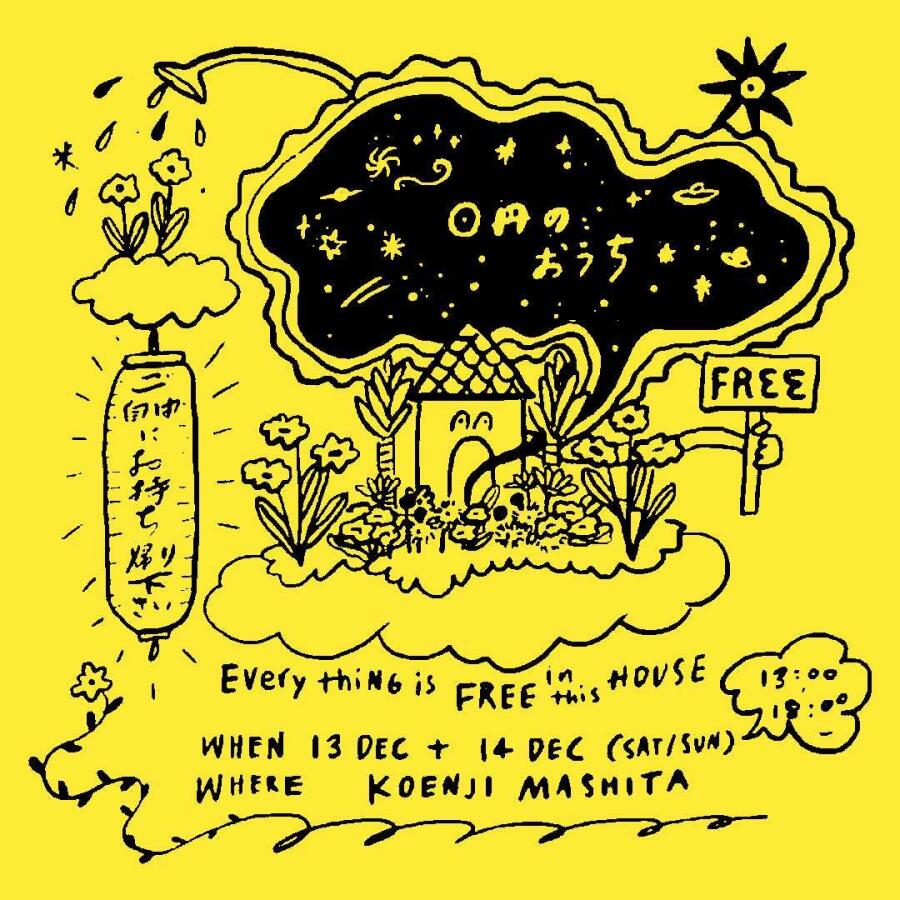 0円の
おうち
FREE
ご自由にお持ち帰り下さい
EVERY THING is FREE in this HOUSE
13:00
18:00
WHEN 13 DEC + 14 DEC (SAT/SUN)
WHERE KOENJI MASHITA